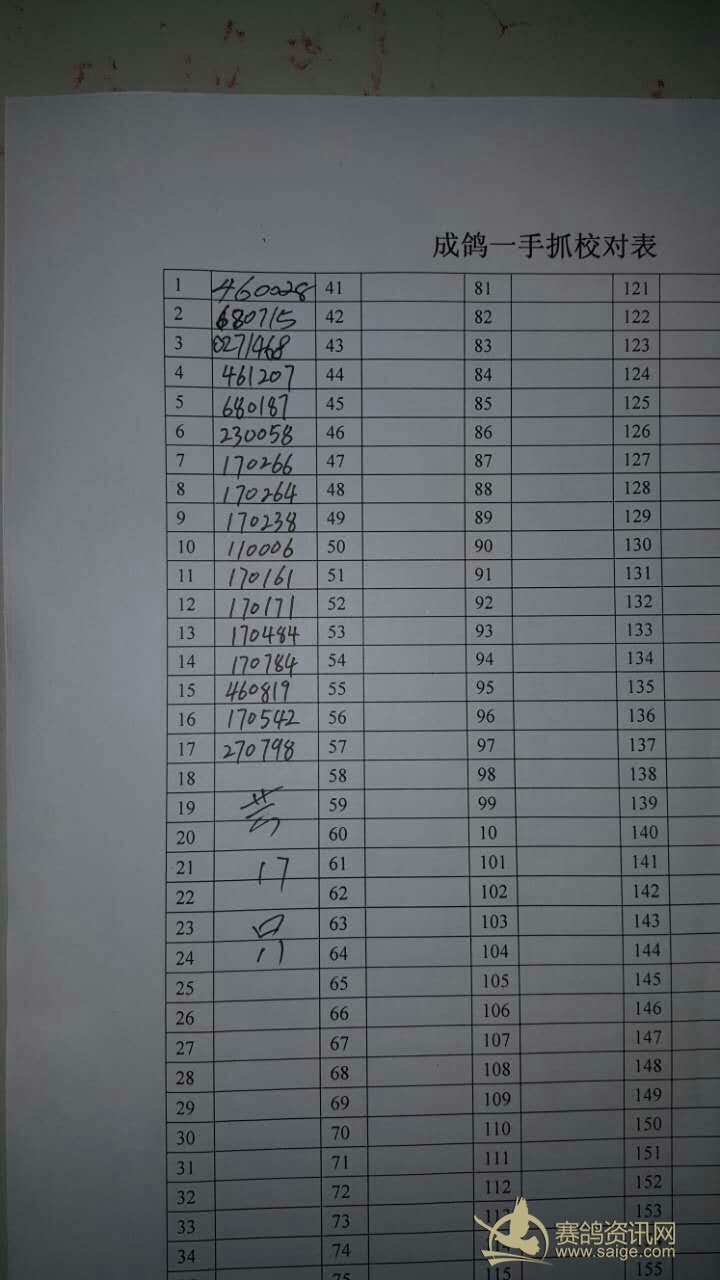 成鸽一手抓校对表
1 460028 41 81 121
2 680715 42 82 122
3 0271468 43 83 123
4 461207 44 84 124
5 680187 45 85 125
6 230058 46 86 126
7 170266 47 87 127
8 170264 48 88 128
9 170238 49 89 129
10 110006 50 90 130
11 170161 51 91 131
12 170171 52 92 132
13 170484 53 93 133
14 170784 54 94 134
15 460819 55 95 135
16 170542 56 96 136
17 270798 57 97 137
18 58 98 138
19 59 99 139
20 60 10 140
21 17 61 101 141
22 62 102 142
23 63 103 143
24 64 104 144
25 65 105 145
26 66 106 146
27 67 107 147
28 68 108 148
29 69 109 149
30 70 110 150
31 71 111 151
32 72 112 152
33 73 153
34 74
75 115 155
赛鸽资讯网
www.saige.com